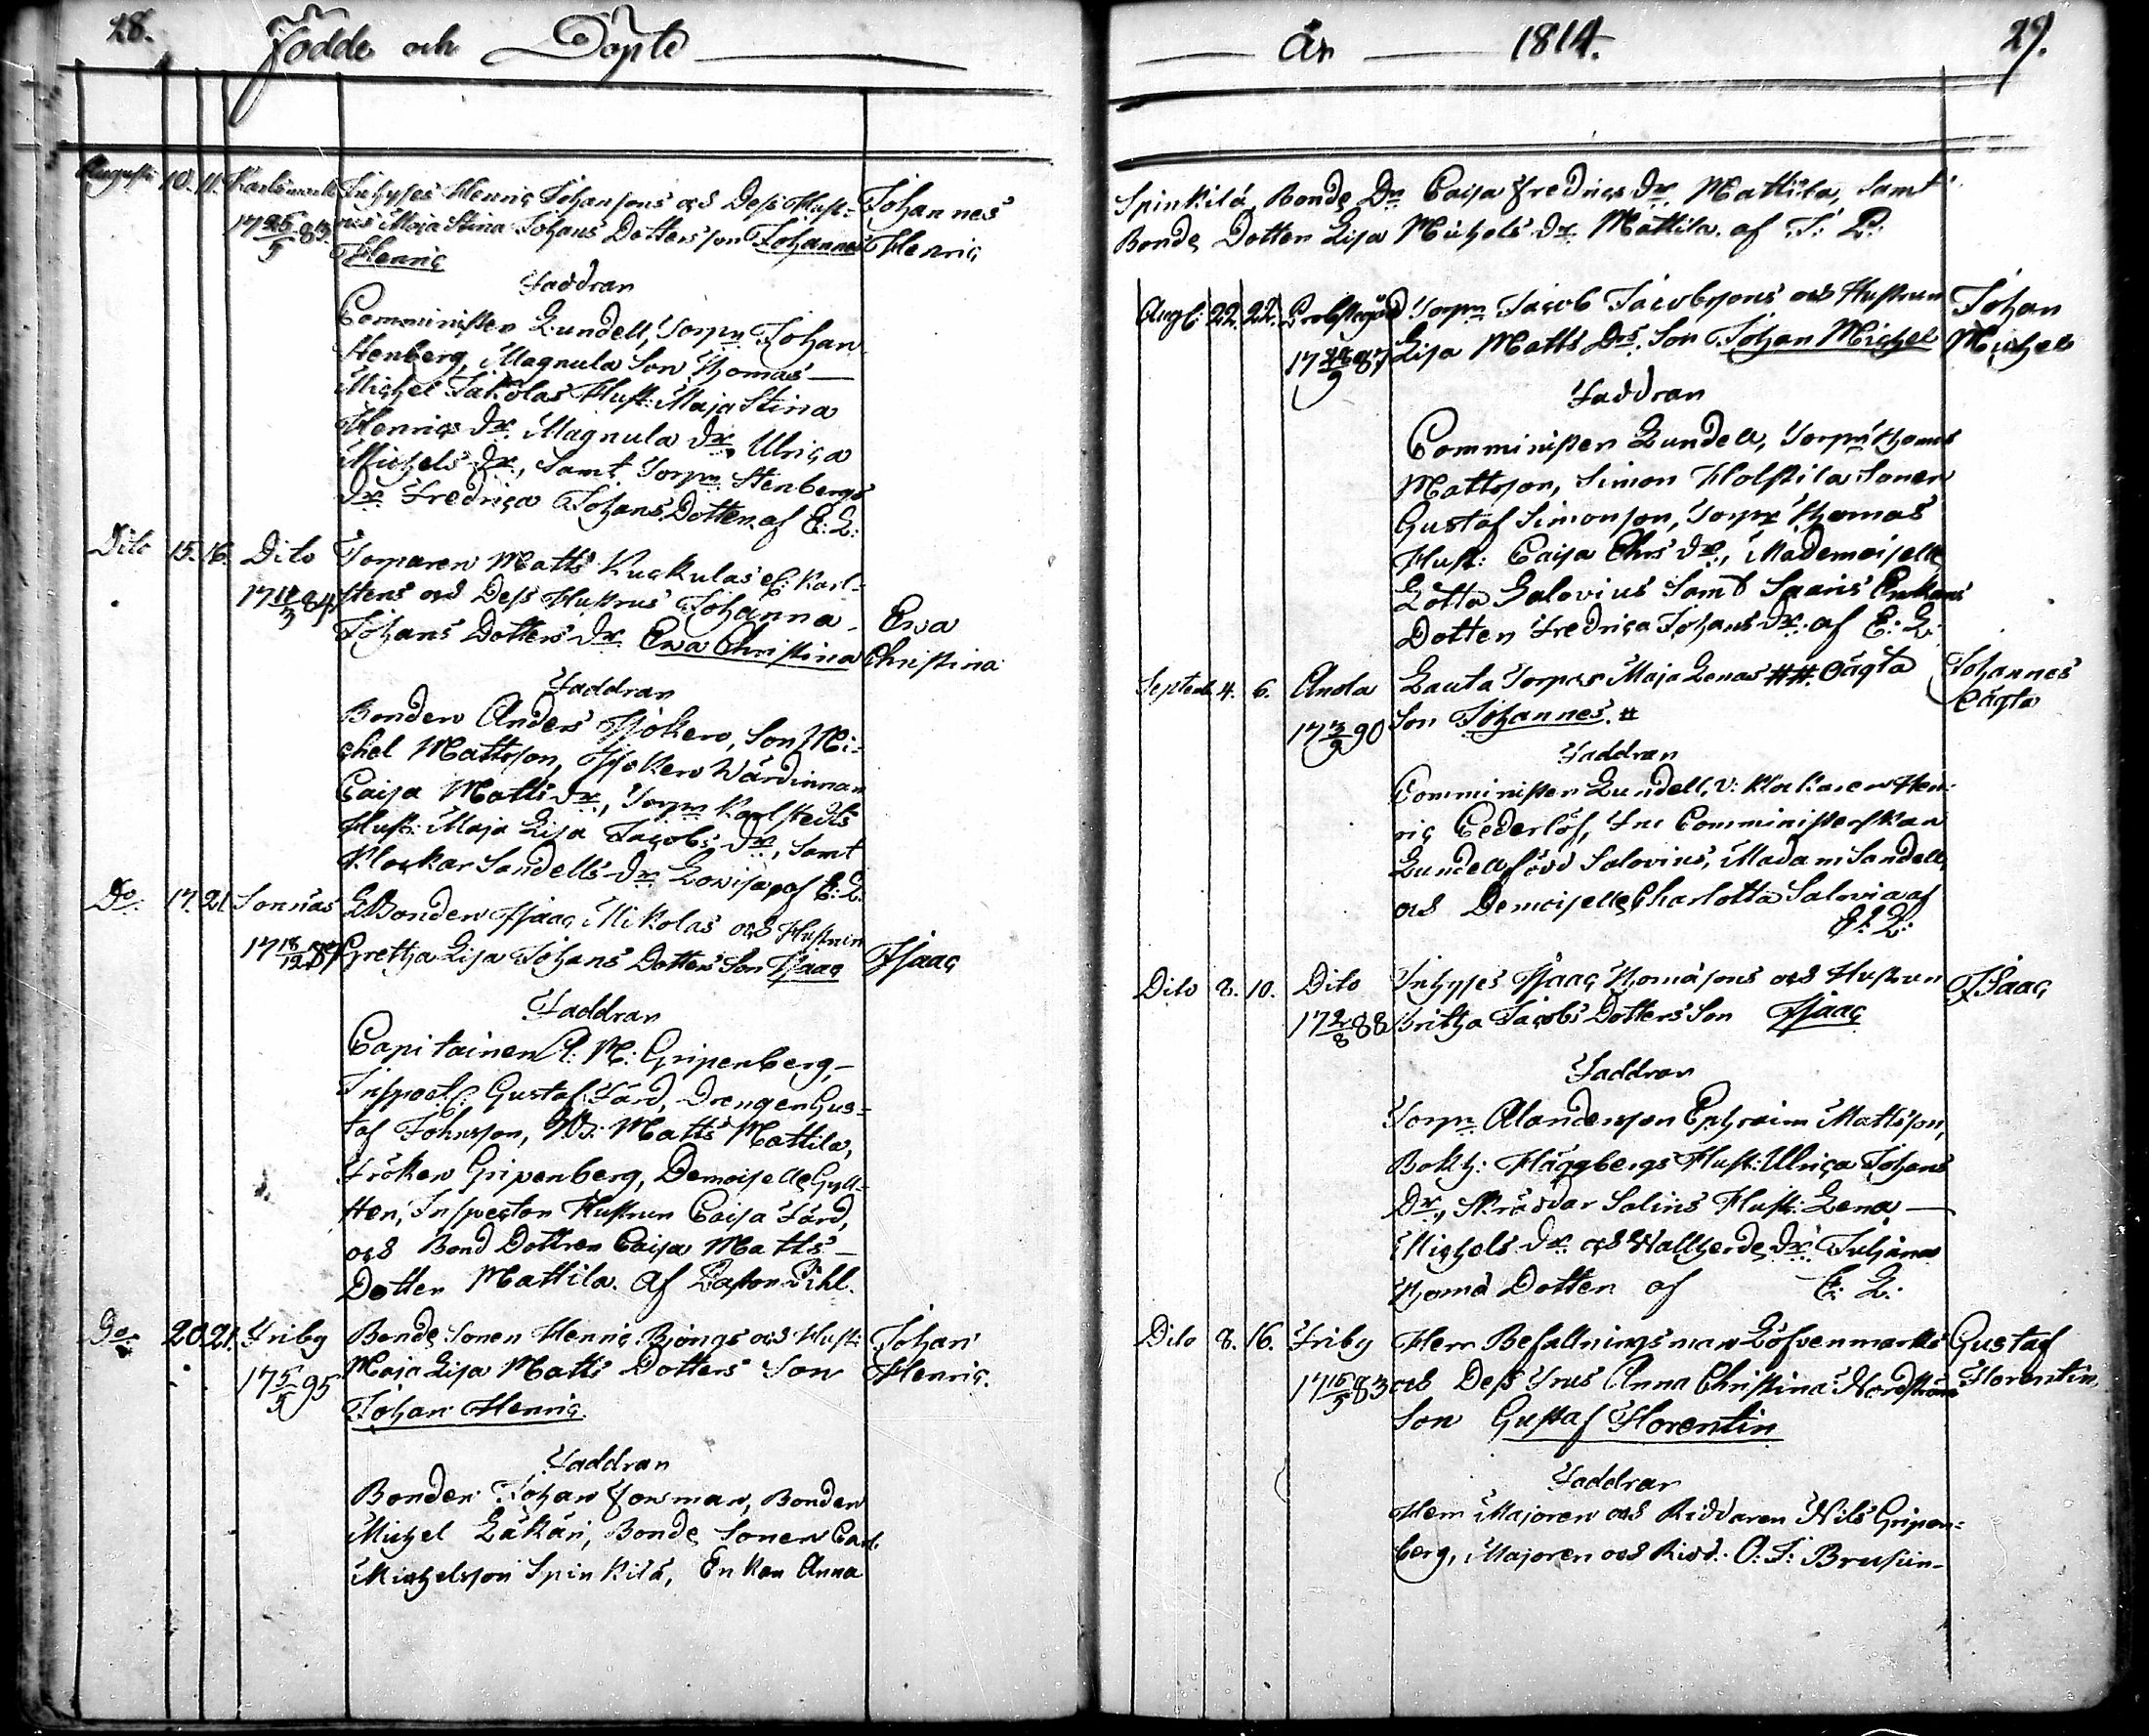 28. Födde och Döpte
Augusti 10. 11. Karlsmark Inhyses Henric Johansons och Dess Hust= Johannes
17 25/5 83. rus Maja Stina Johans Dotters son Johannes Henric
Henric
Faddrar
Comministern Lundell, Torpn Johan
Stenberg, Magnula Son Thomas
Michel Jakolas Hust: Maja Stina
Henrics Dr. Magnula Dr. Ulrica
Michels Dr., Samt Torpn Stenbergs
Dr. Fredrica Johans Dotter, af E: L:
Dito 15. 16. Dito Torparen Matts Kuckulas el: Karl=
17 /3 84 stens och Dess Hustrus Johanna Ewa
Johans Dotters Dr. Ewa Christina Christina
Faddrar
Bonden Anders Sjökers, Son Mi=
chel Mattsson, Sjökers Wärdinnan
Caisa Matts Dr., Torpn Karlstedts
Hust: Maja Lisa Jacobs Dr., samt
Klockar Sandells Dr. Lovisa, af E: L.
Do. 17. 21. Sonnäs Bonden Isaac Mikolas och Hustrun
17 18/12 Gretha Lisa Johans Dotters Son Isaac Isaac
Faddrar
Capitainen A: M: Gripenberg,
Inspect: Gustaf Färd, Drengen Gus=
taf Johnsson, Matts Mattila,
Fröken Gripenberg, Demoiselle Gyll=
Inspector Hustrun Caisa Färd,
och Bond Dottren Caisa Matts
Dotter Mattila. af Pastor Pihl.
Do. 20. 21. Friby Bonde Sonen Henric Björngs och Hust: Johan
17 5/5 95 Maja Lisa Matts Dotters Son Henric.
Johan Henric.
Faddrar
Bonden Johan Forsman, Bonden
Michel Läkäri, Bonde Sonen Carl
Michelsson Spinkilä, Enkan Anna
År 1814. 29.
Spinkilä, Bonde Dr. Caisa Fredrics Dr. Mattila, Samt
Bonde Dotter Lisa Michels Dr. Mattila. af J: P:
Aug: 22. 22. Prostegård Torpn Jacob Jacobsons och Hustrun Johan
17 /9 87 Lisa Matts Drs. Son Johan Michel Michel
Faddrar
Comministern Lundell, Torpn Thomas
Mattsson, Simon Holstila Sonen
Gustaf Simonson, Torpr Thomas
Hust: Caisa Chrs Dr., Mademoiselle
Lotta Salovius samt Saaris Enkans
Dotter Fredrica Johans Dr. af E: L:
Septemb. 4. 6. Anola Lauta Torpars Maja Lenas ##. Oägta Johannes
17 3/9 90 Son Johannes. # Oägta
Faddrar
Comministern Lundell, v: Klockaren Hen=
ric Cederlöf, Fru Comministerskan
Lundell född Salovius, Madam Sandell,
och Demoiselle Charlotta Salovia af
E: L:
Dito 8. 10. Dito Inhyses Isaac Thomasons och Hustrun Isaac
17 2/8 88 Britha Jacobs Dotters Son Isaac
Faddrar
Torpn Alandersson Ephraim Mattsson,
Bokh: Häggbergs Hust: Ulrica Johans
Dr., Skräddar Salins Hust: Lena
Michels Dr. och Wallherde Dr. Juliana
Thomæ Dotter af E: L:
Dito 8. 16. Friby Herr Befallningsman Löfvenmarks Gustaf
17 15/5 83 och Dess Frus Anna Christina Nordström Florentin
Son Gustaf Florentin
Faddrar
Herr Majoren och Riddaren Nils Gripen=
berg, Majoren och Ridd: O: J: Brusiin